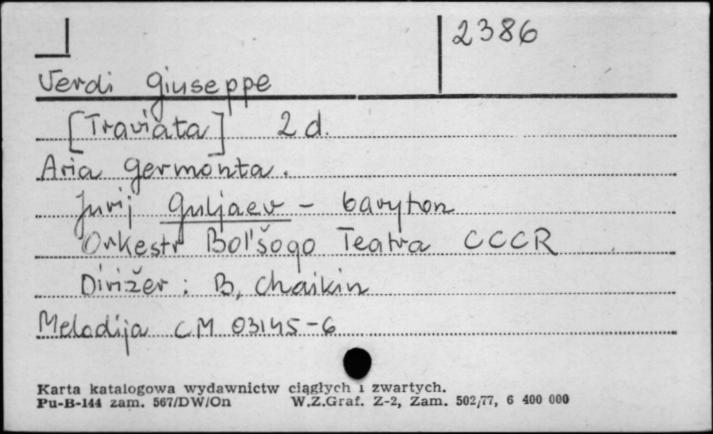 2386
Verdi Giuseppe
[Traviata] 2 d.
Aria Germonta.
Jurij Guljaev - baryton
Orkestr Bol'šogo Teatra CCCR
Dirižer: B. Chaikin
Melodija CM 03145-6
Karta katalogowa wydawnictw ciągłych i zwartych.
Pu-B-144 zam. 567/DW/On W.Z.Graf. Z-2, Zam. 502/77, 6 400 000